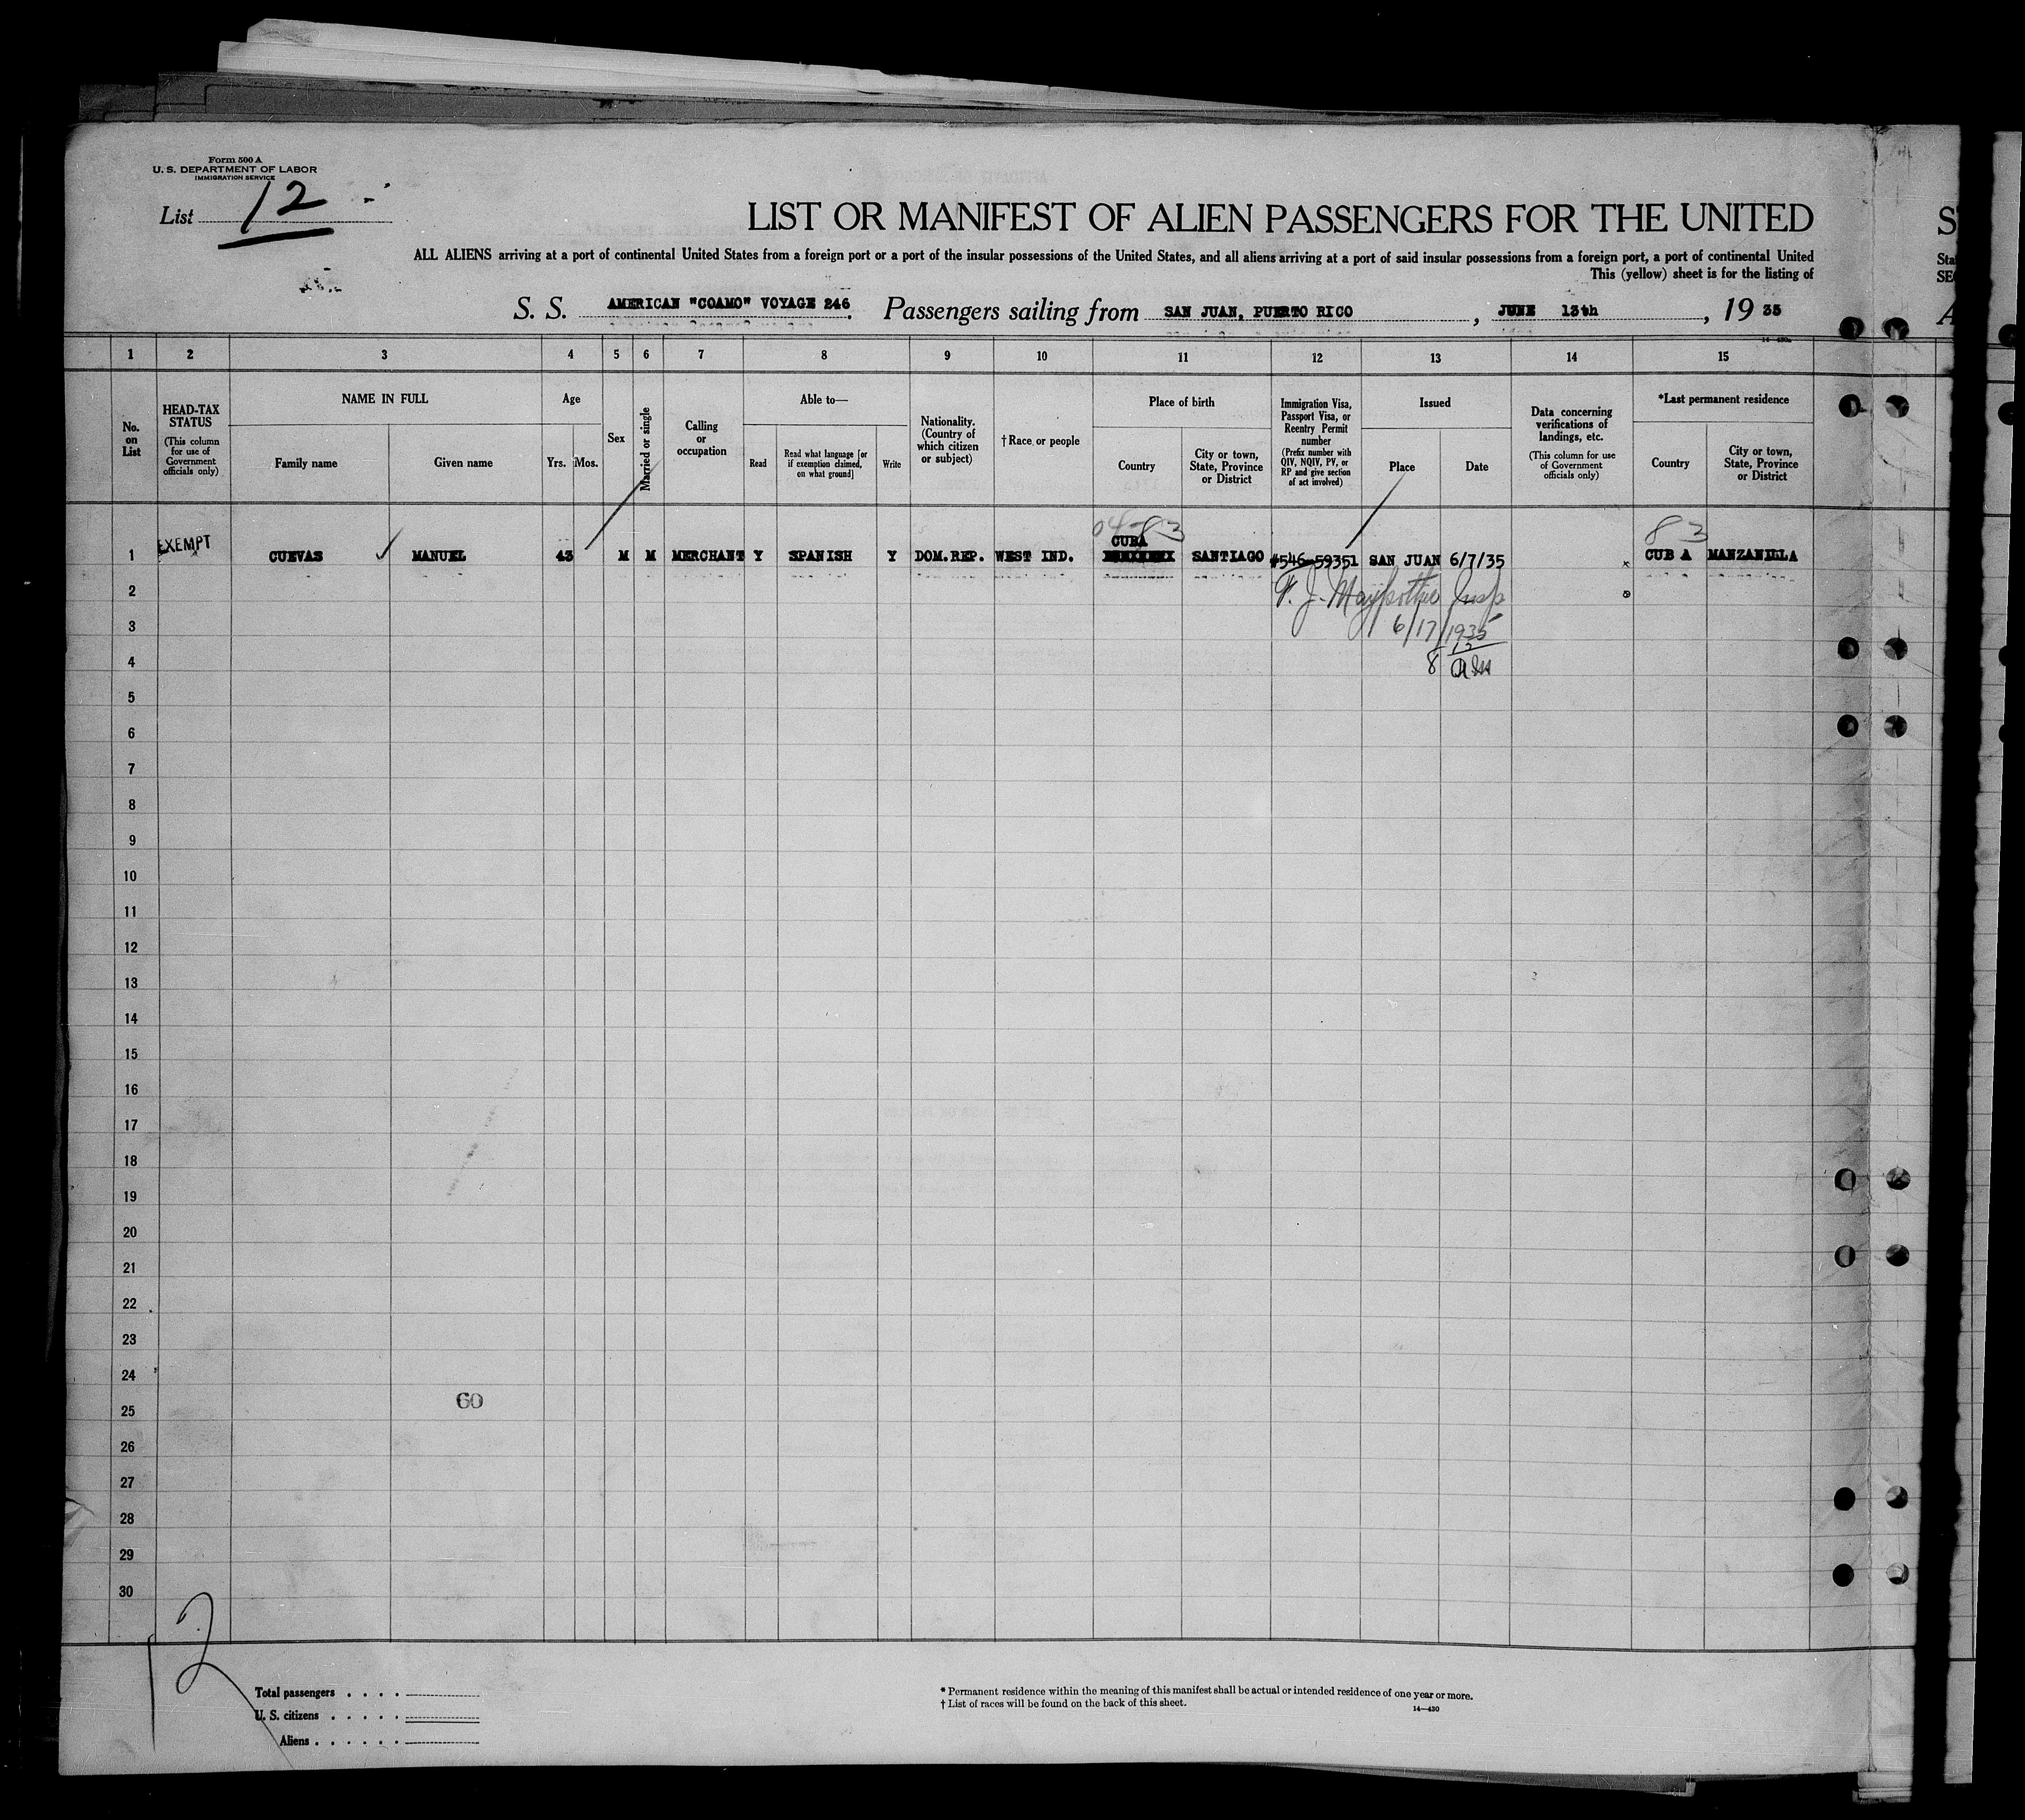 Form 500 A
U. S. DEPARTMENT OF LABOR
IMMIGRATION SERVICE
List 12
LIST OR MANIFEST OF ALIEN PASSENGERS FOR THE UNITED
ALL ALIENS arriving at a port of continental United States from a foreign port or a port of the insular possessions of the United States, and all aliens arriving at a port of said insular possessions from a foreign port, a port of continental United
This (yellow) sheet is for the listing of
S. S. AMERICAN "COAMO" VOYAGE 246. Passengers sailing from SAN JUAN, PUERTO RICO, JUNE 13th, 19 35
14-430a
1 2 3 4 5 6 7 8 9 10 11 12 13 14 15
No. on List
HEAD-TAX STATUS (This column for use of Government officials only)
NAME IN FULL
Family name
Given name
Age
Yrs. Mos.
Sex
Married or single
Calling or occupation
Able to—
Read
Read what language [or if exemption claimed, on what ground]
Write
Nationality. (Country of which citizen or subject)
† Race or people
Place of birth
Country
City or town, State, Province or District
Immigration Visa, Passport Visa, or Reentry Permit number (Prefix number with QIV, NQIV, PV, or RP and give section of act involved)
Issued
Place
Date
Data concerning verifications of landings, etc. (This column for use of Government officials only)
*Last permanent residence
Country
City or town, State, Province or District
83
CUBA
1 EXEMPT CUEVAS MANUEL 43 M M MERCHANT Y SPANISH Y DOM.REP. WEST IND. SANTIAGO #546-59351 SAN JUAN 6/7/35 CUB A MANZANILLA
2
3 6/17/1935
4 8
5
6
7
8
9
10
11
12
13
14
15
16
17
18
19
20
21
22
23
24
60
25
26
27
28
29
30
12
Total passengers
U. S. citizens
Aliens
* Permanent residence within the meaning of this manifest shall be actual or intended residence of one year or more.
† List of races will be found on the back of this sheet.
14—430